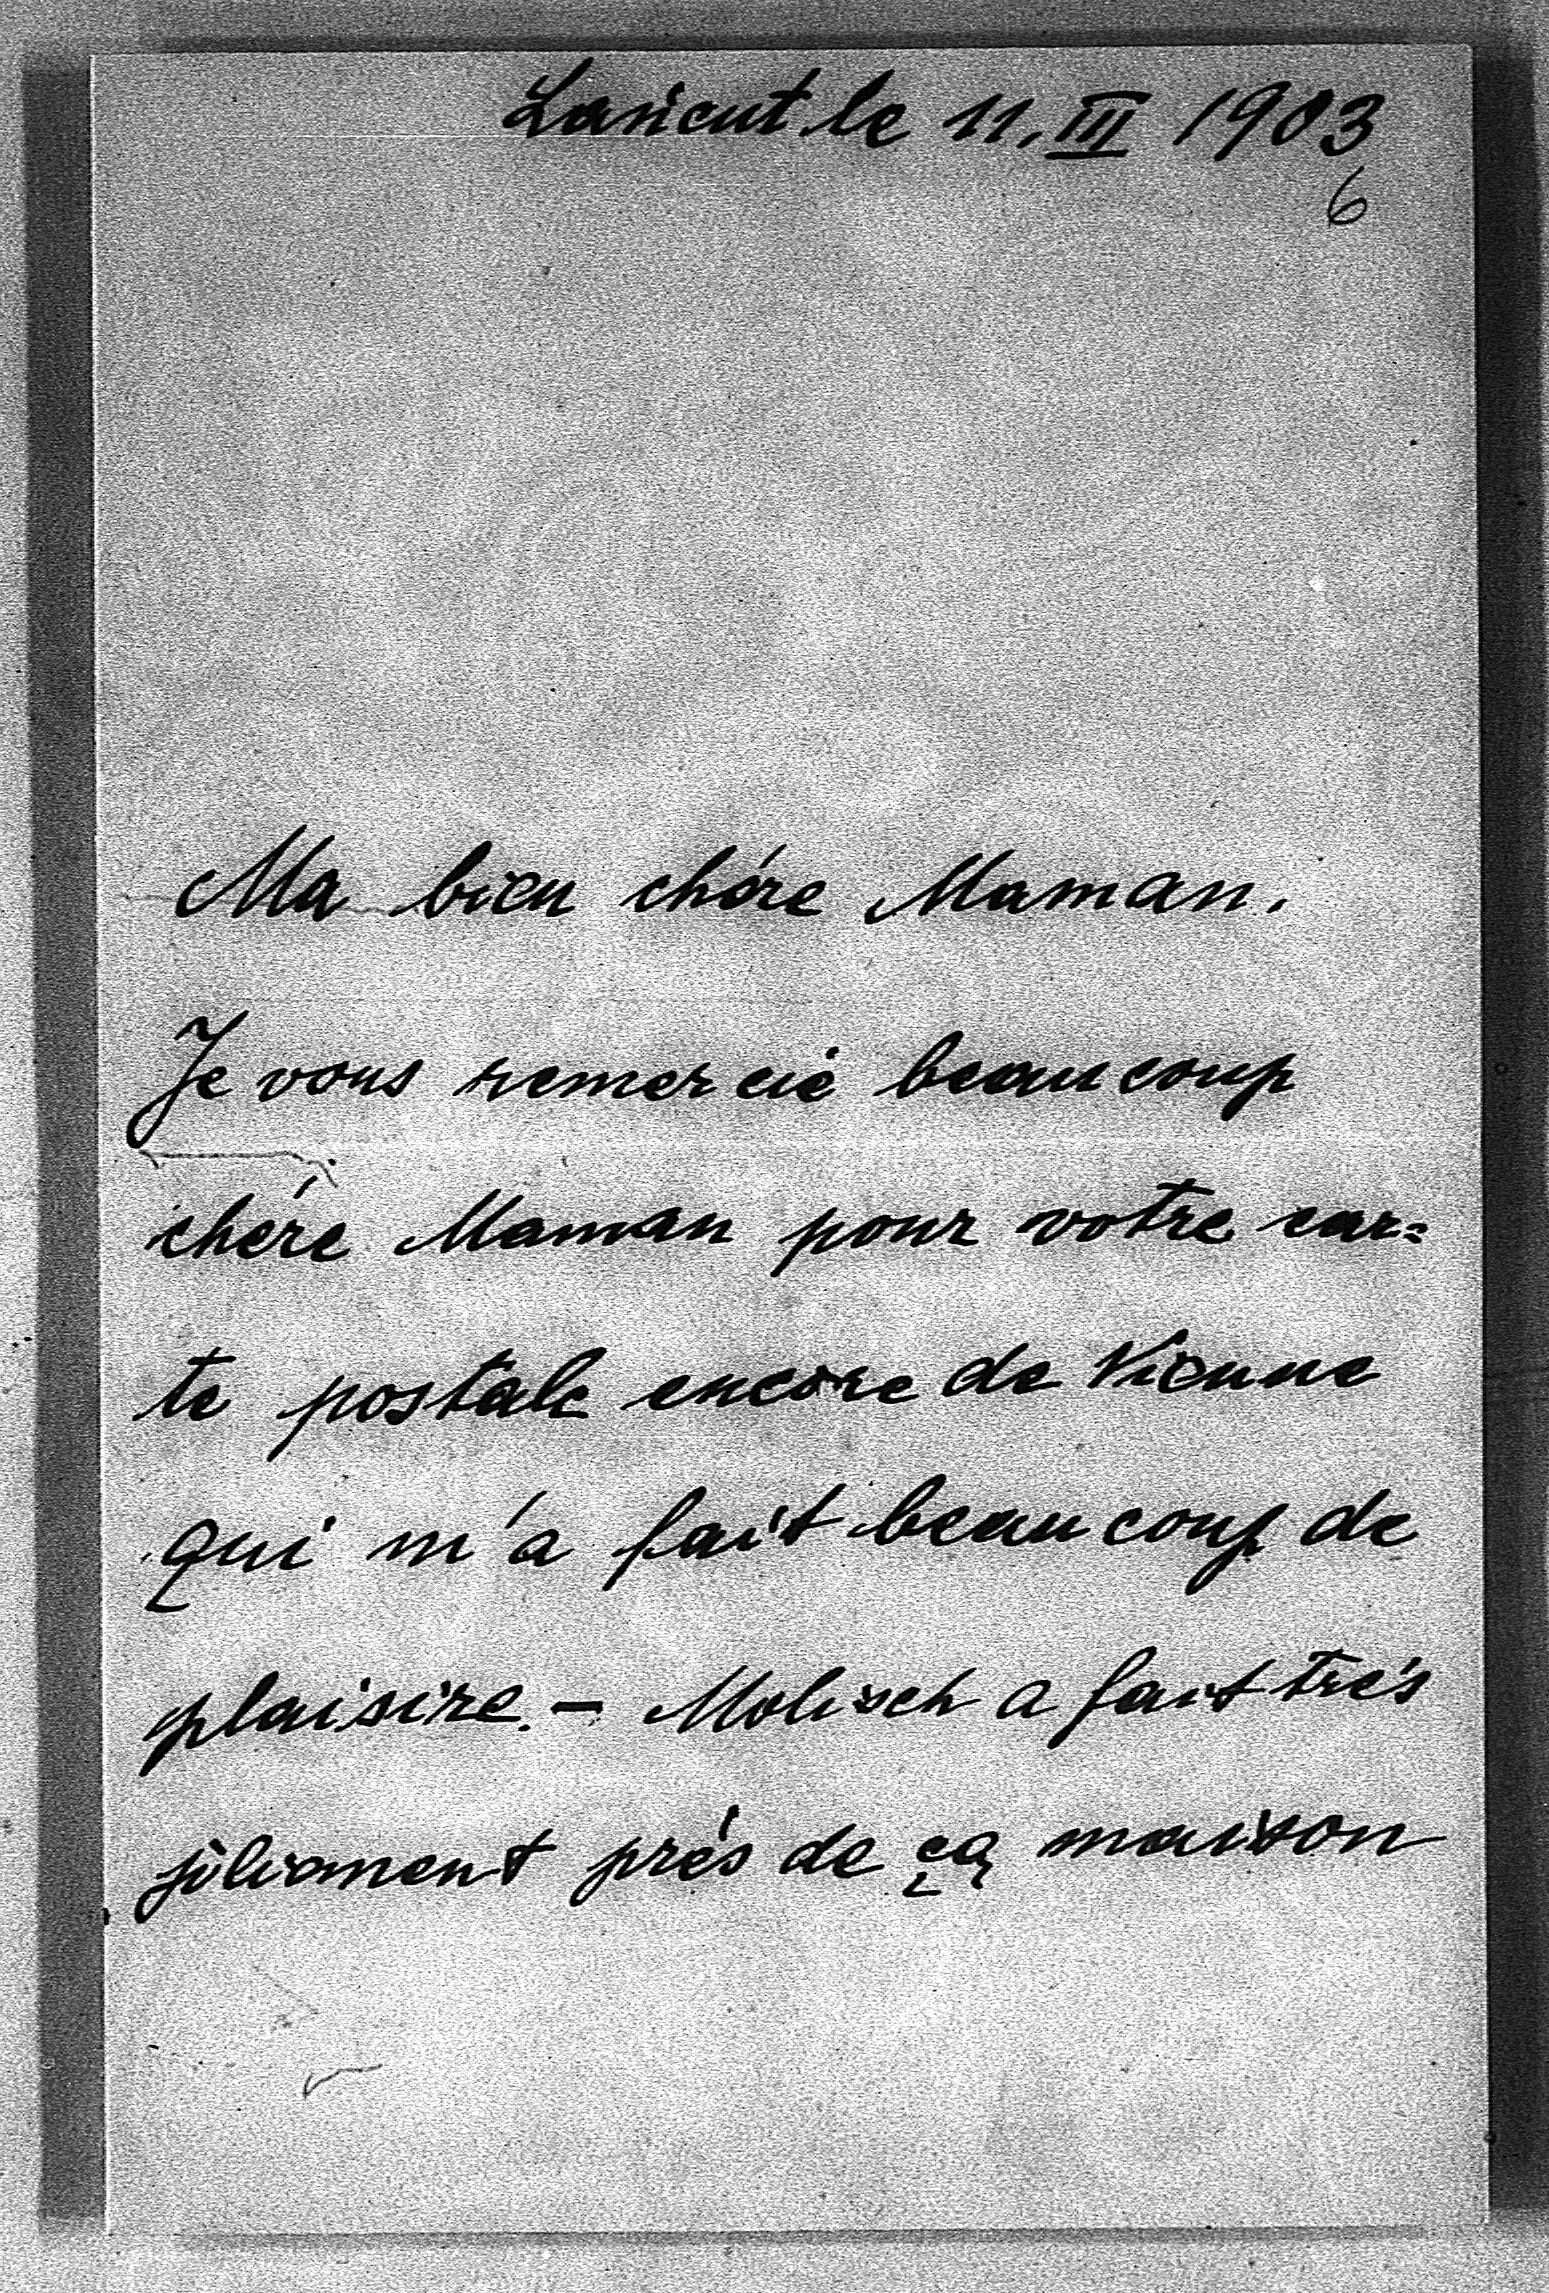 Łańcut le 11. III 1903
6
Ma bien chére Maman.
Je vous remercie beaucoup
chére Maman pour votre car=
te postale encore de Vienne
qui m'a fait beaucoup de
plaisire. – Molisch a fait trés
joliement prés de ça maison